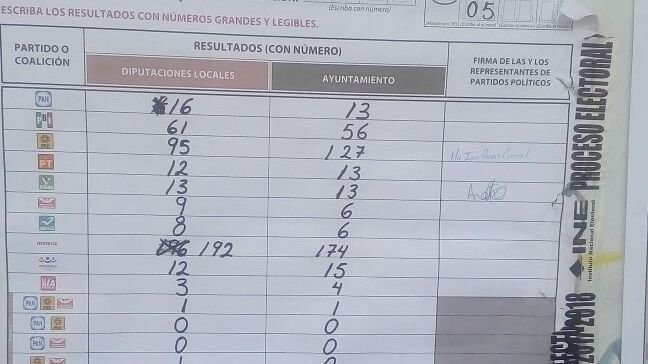 ESCRIBA LOS RESULTADOS CON NÚMEROS GRANDES Y LEGIBLES.
(Escriba con número)
05
PARTIDO O COALICIÓN
RESULTADOS (CON NÚMERO)
DIPUTACIONES LOCALES
AYUNTAMIENTO
FIRMA DE LAS Y LOS REPRESENTANTES DE PARTIDOS POLÍTICOS
PAN 16 13
PRI 61 56
PRD 95 127
PT 12 13
VERDE 13 13
9 6
8 6
morena 192 174
12 15
VIA 3 4
PAN PRD 1 1
PAN PRD 0 0
PAN 0 0
PRD
INE
Instituto Nacional Electoral
PROCESO ELECTORAL
2017-2018